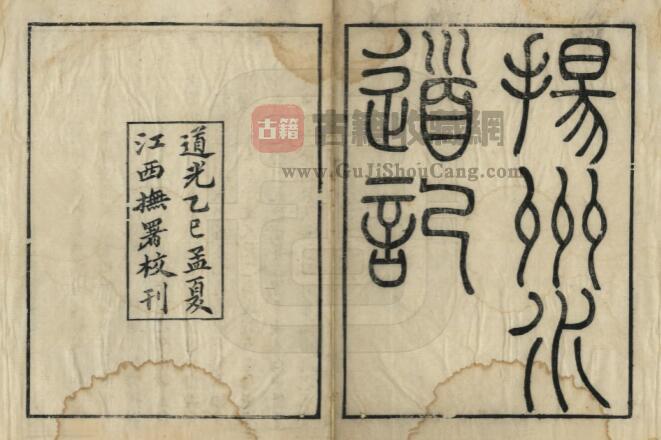 揚州水
道記
道光乙巳孟夏
江西撫署校刊
古籍
古籍收藏網
www.GuJiShouCang.com